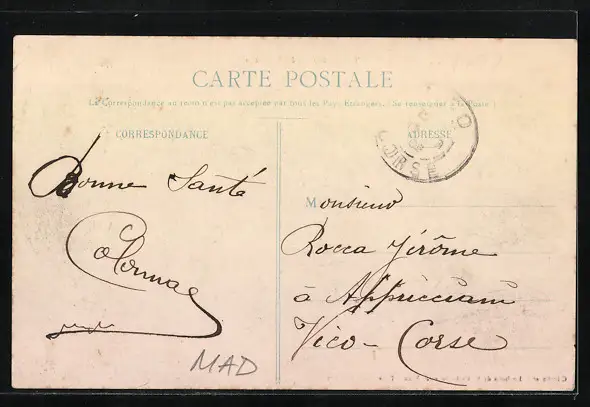 CARTE POSTALE
La Correspondance au recto n'est pas acceptée par tous les Pays Étrangers. (Se renseigner à la Poste)
CORRESPONDANCE
ADRESSE
CORSE
Bonne Santé
Colonna
Monsieur
Rocca Jérôme
à Appricciani
Vico - Corse
MAD